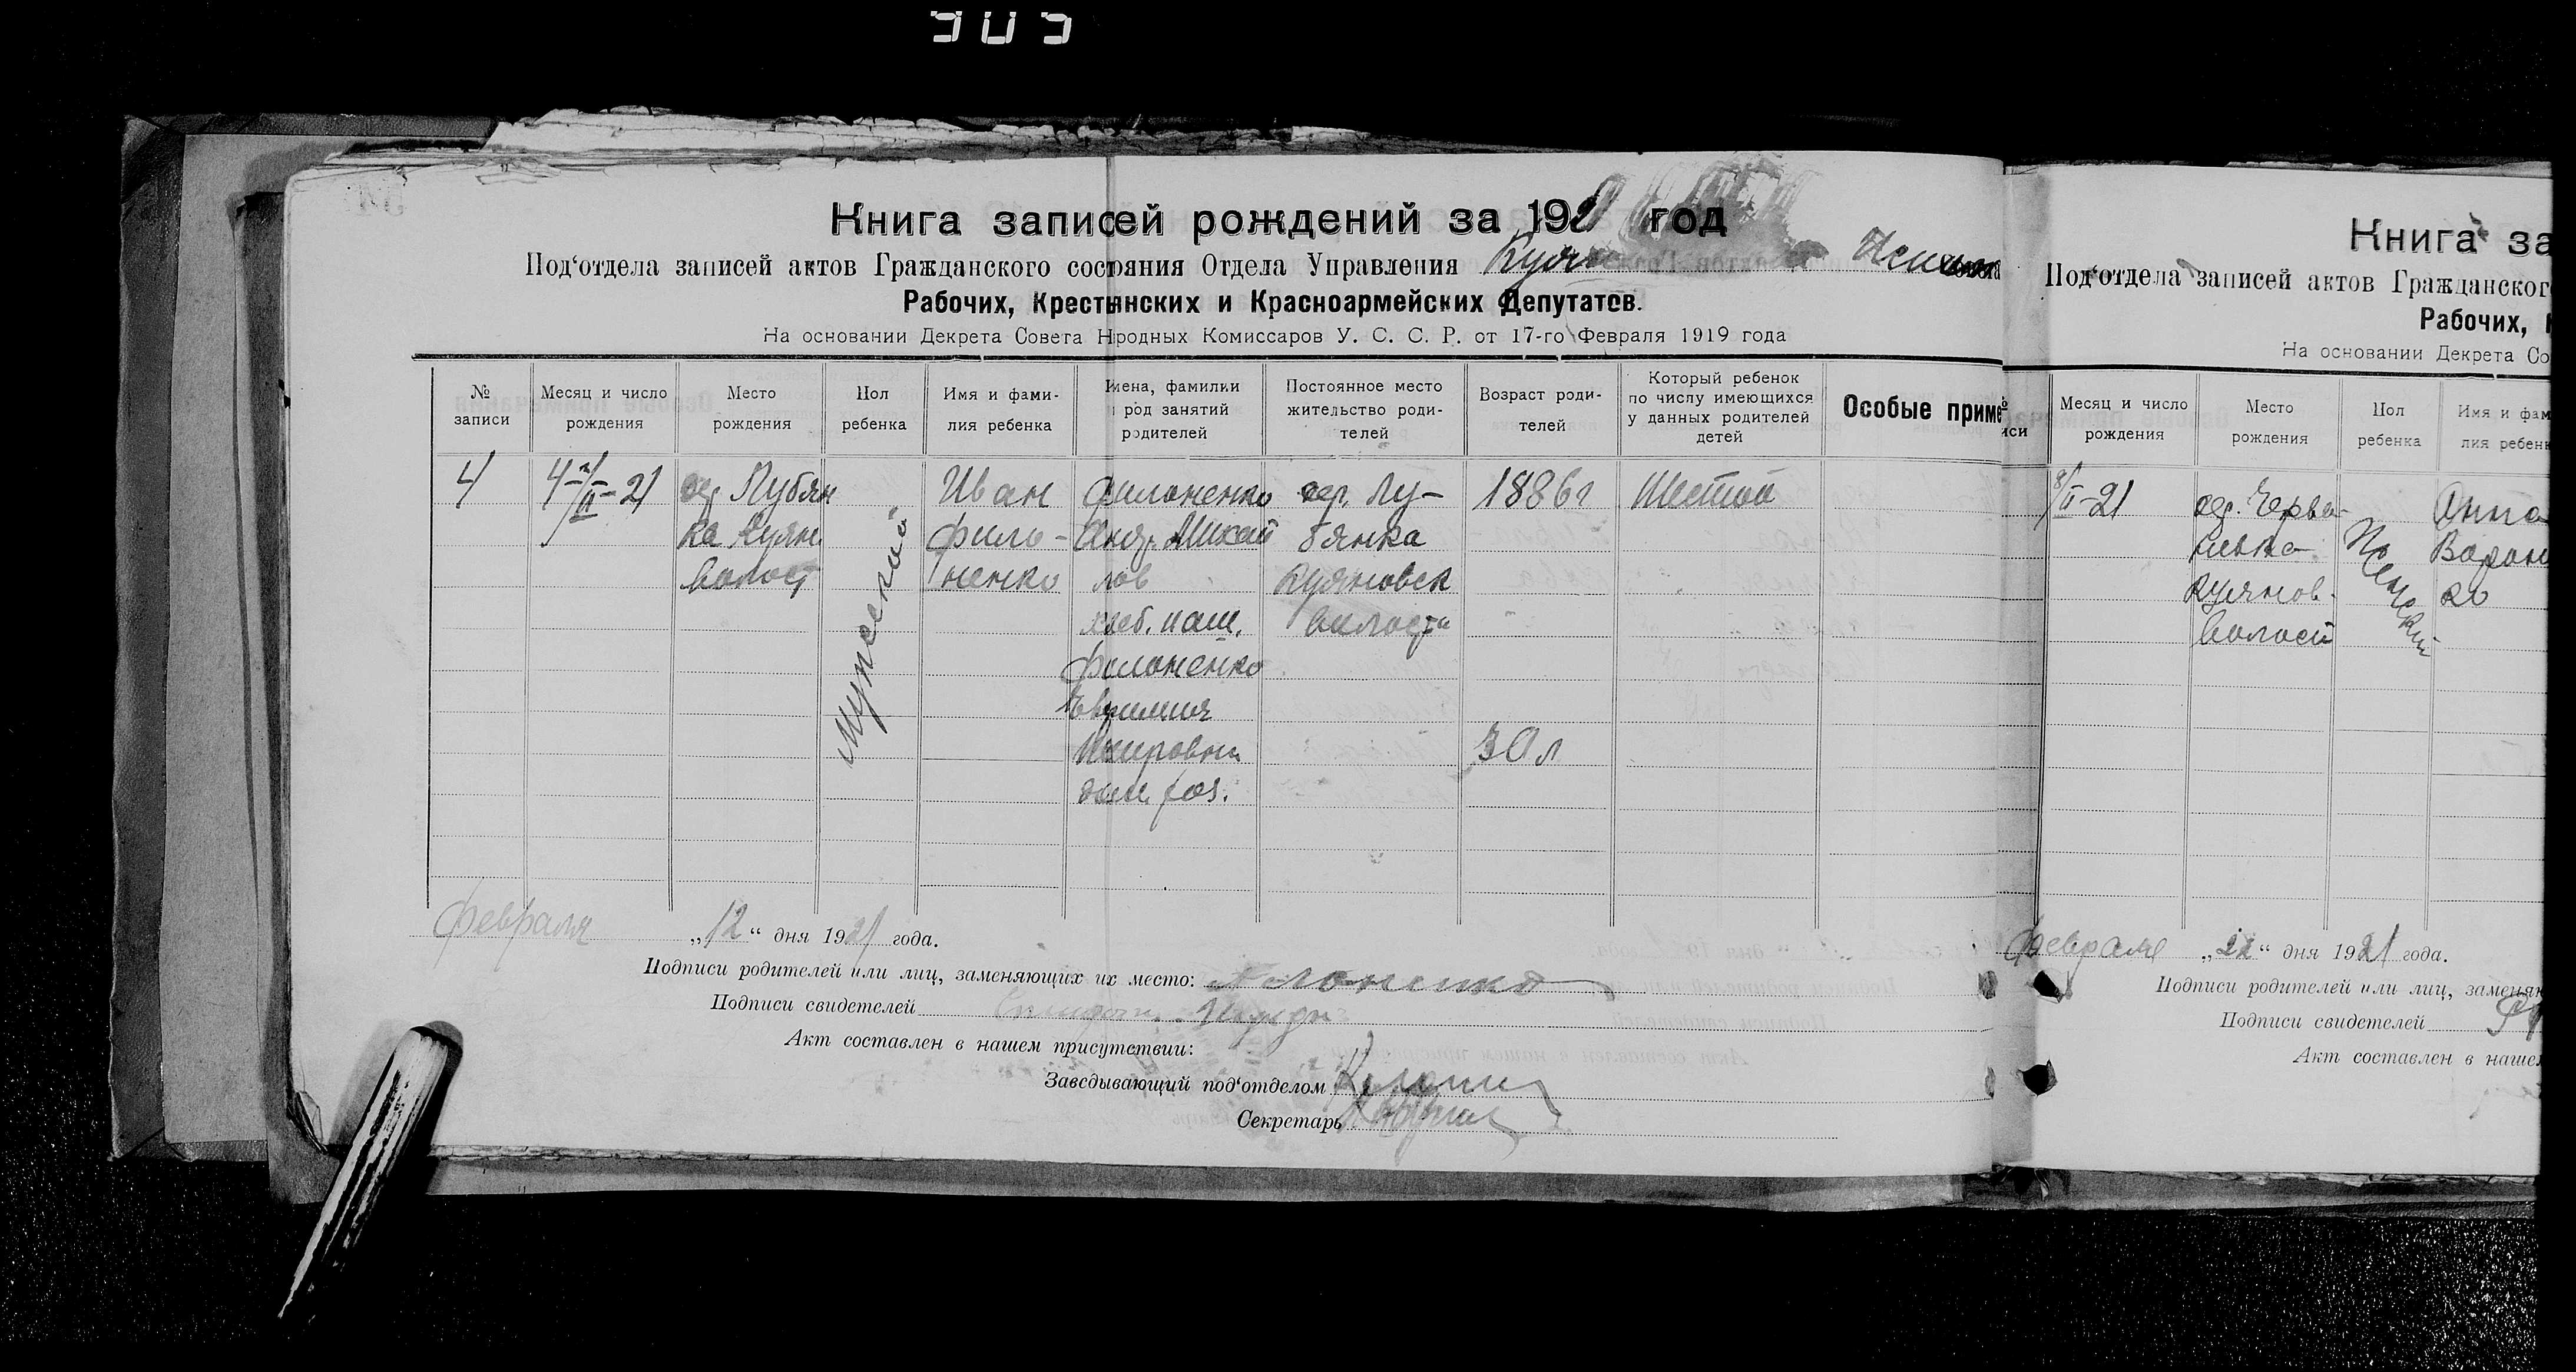 905
Книга записей рождений за 1921 год
Под‘отдела записей актов Гражданского состояния Отдела Управления
Рабочих, Крестьянских и Красноармейских Депутатов.
На основании Декрета Совета Нродных Комиссаров У. С. С. Р. от 17-го Февраля 1919 года
№ записи
Месяц и число рождения
Место рождения
Пол ребенка
Имя и фами-
лия ребенка
Имена, фамилии
и род занятий
родителей
Постоянное место
жительство роди-
телей
Возраст роди-
телей
Который ребенок
по числу имеющихся
у данных родителей
детей
Особые приме
4
4/II-21
дер. Лубян
ка Куян.
волост
Мужской
Иван
Фило-
ненко
Филоненко
Андр. Михай
лов
хлеб. паш.
Филоненко
дом. хоз.
дер. Лу-
бянка
Куяновск
волости
1886 г
30 л
Шестой
Февраля „12“ дня 1921 года.
Подписи родителей или лиц, заменяющих их место: Филоненко
Подписи свидетелей
Акт составлен в нашем присутствии:
Заведывающий под‘отделом
Секретарь
Книга за
Под‘отдела записей актов Гражданског
Рабочих,
На основании Декрета Со
иси
Месяц и число
рождения
Место
рождения
Пол
ребенка
Имя и фам
лия ребен
8/II-21
дер. Черво-
Куянов.
волости
Женский
Анна
Ворон
Февраля „22“ дня 1921 года.
Подписи родителей или лиц, заменяю
Подписи свидетелей
Акт составлен в наше